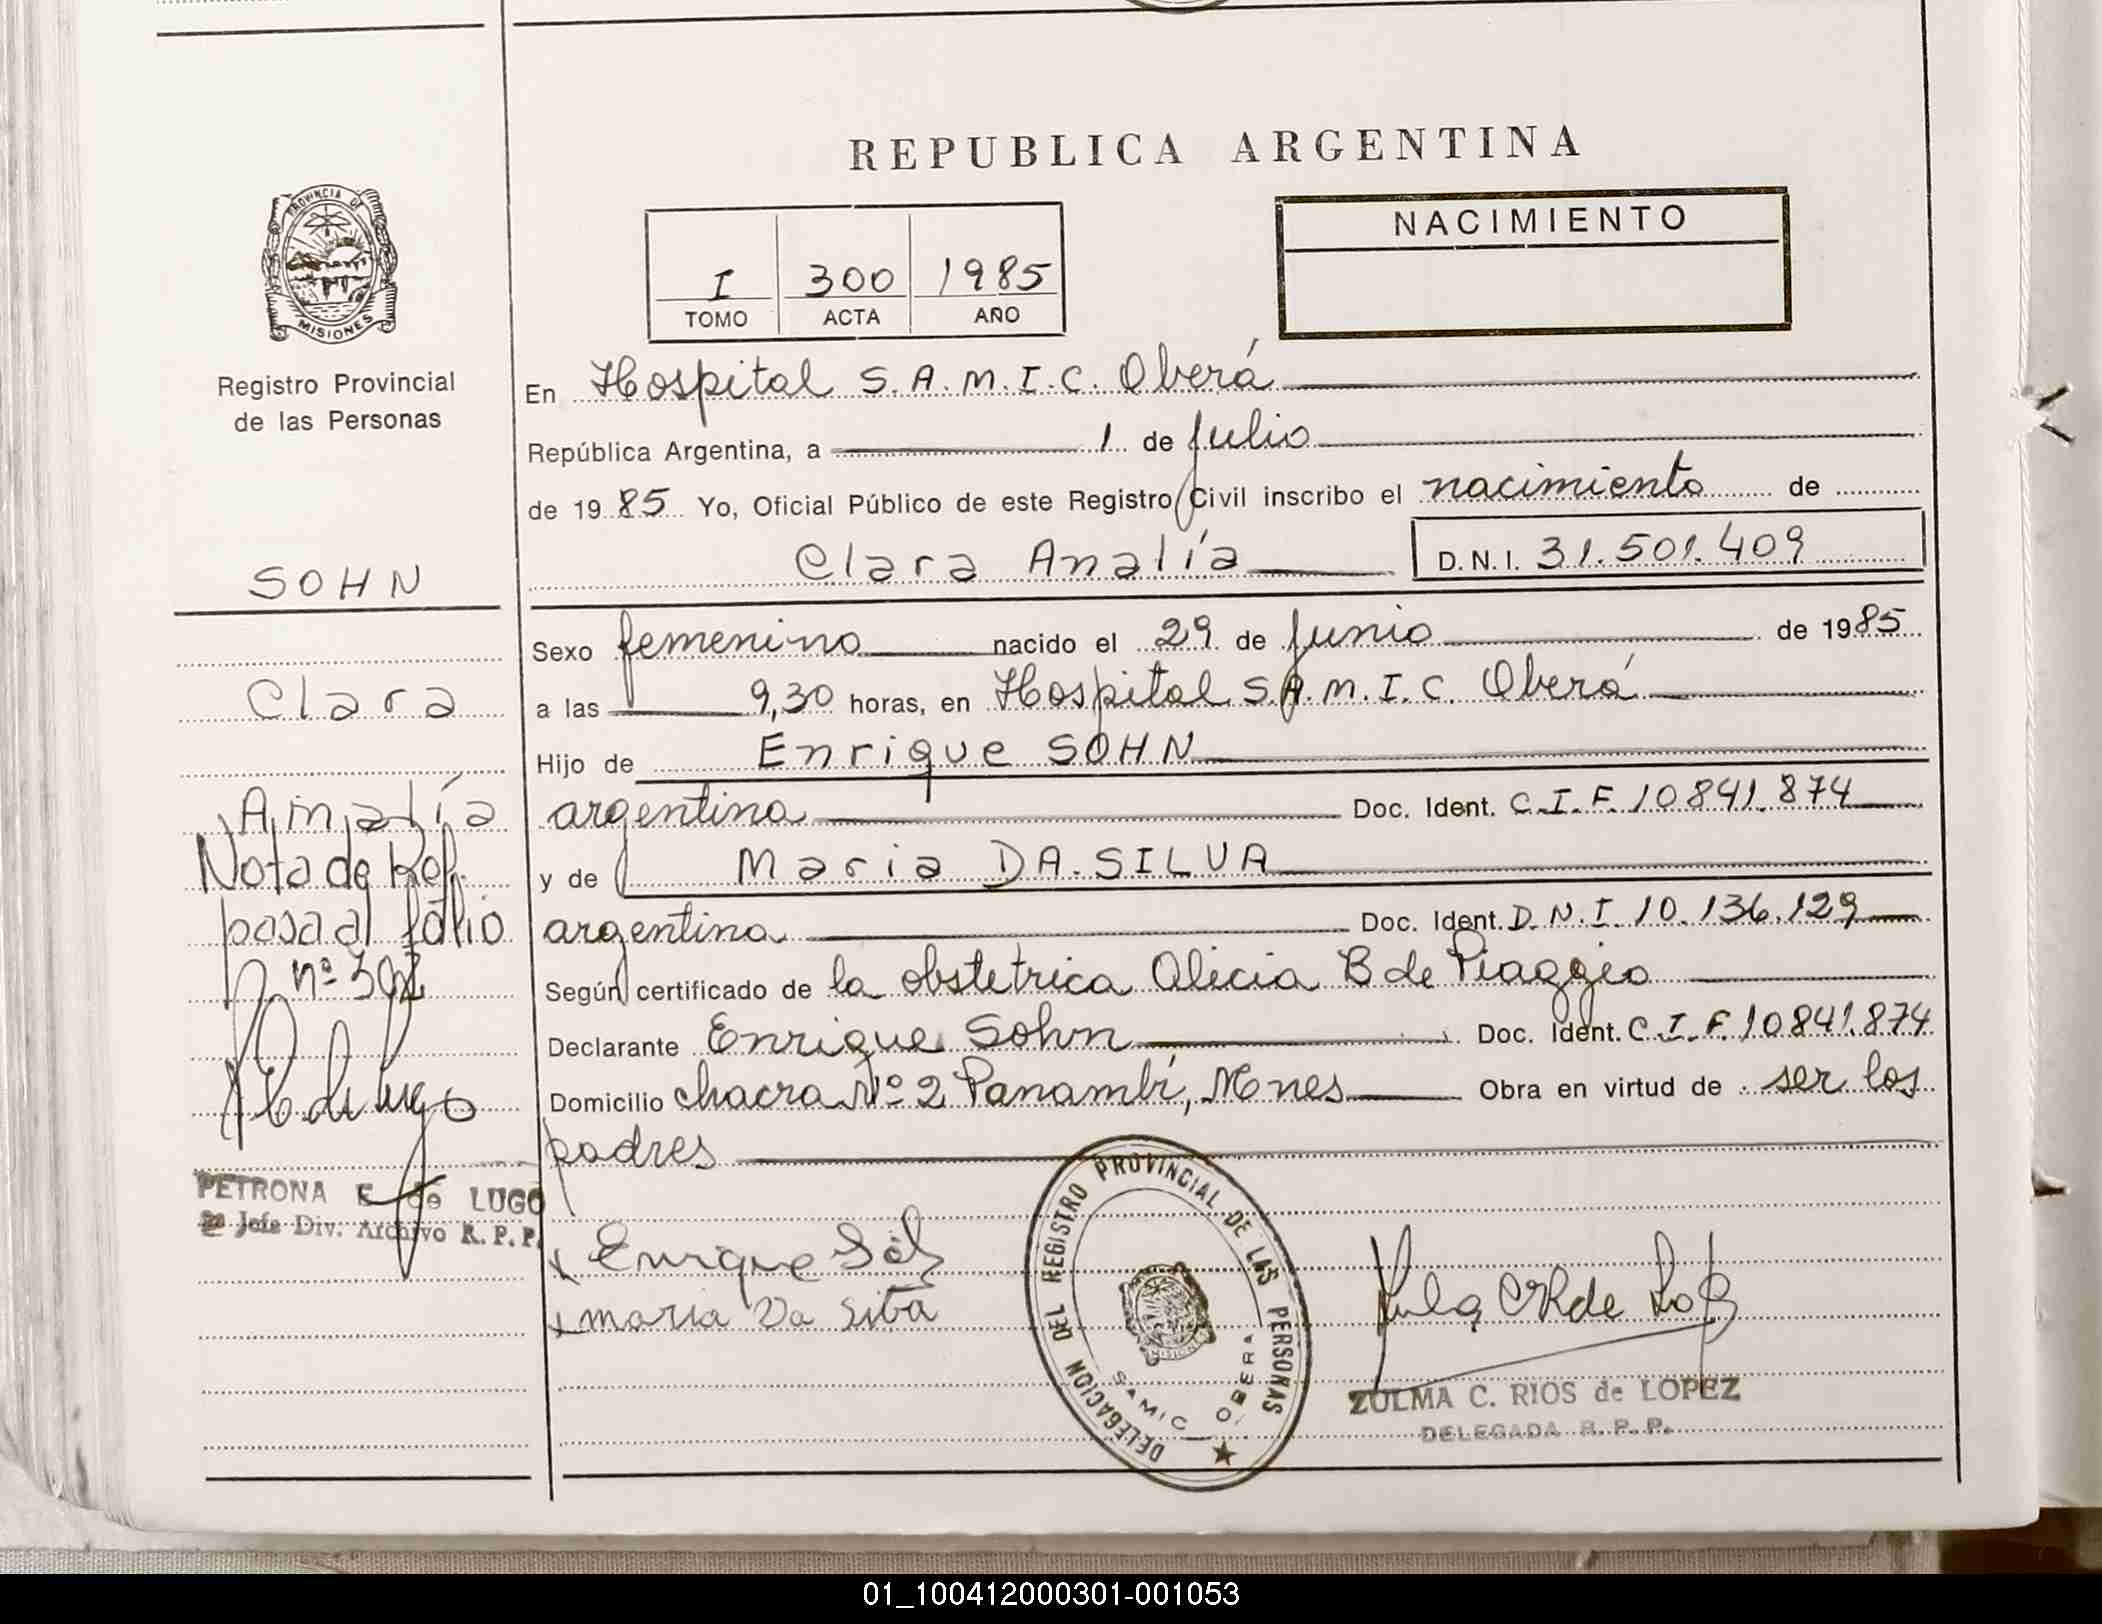 REPUBLICA ARGENTINA
PROVINCIA DE
MISIONES
Registro Provincial
de las Personas
I 300 1985
TOMO ACTA AÑO
NACIMIENTO
En Hospital S.A.M.I.C. Oberá
República Argentina, a 1 de Julio
de 1985 Yo, Oficial Público de este Registro Civil inscribo el nacimiento de
Clara Analía D.N.I. 31.501.409
SOHN
Sexo femenino nacido el 29 de Junio de 1985
Clara
a las 9,30 horas, en Hospital S.A.M.I.C. Oberá
Hijo de Enrique SOHN
Analía
argentina Doc. Ident. C.I.F. 10841.874
Nota de Ref.
y de Maria DA SILVA
pasa al folio
argentina Doc. Ident. D.N.I. 10.136.129
nº
Según certificado de la obstetrica Alicia B de Piaggio
Declarante Enrique Sohn Doc. Ident. C.I.F. 10841.874
Domicilio chacra Nº 2 Panambí, Mnes Obra en virtud de ser los
padres
PETRONA E de LUGO
2º Jefe Div. Archivo R.P.P.
x Enrique
x maria Da Silva
DELEGACION DEL REGISTRO PROVINCIAL DE LAS PERSONAS
SAMIC OBERA
MISIONES
ZULMA C. RIOS de LOPEZ
DELEGADA R.P.P.
01_100412000301-001053